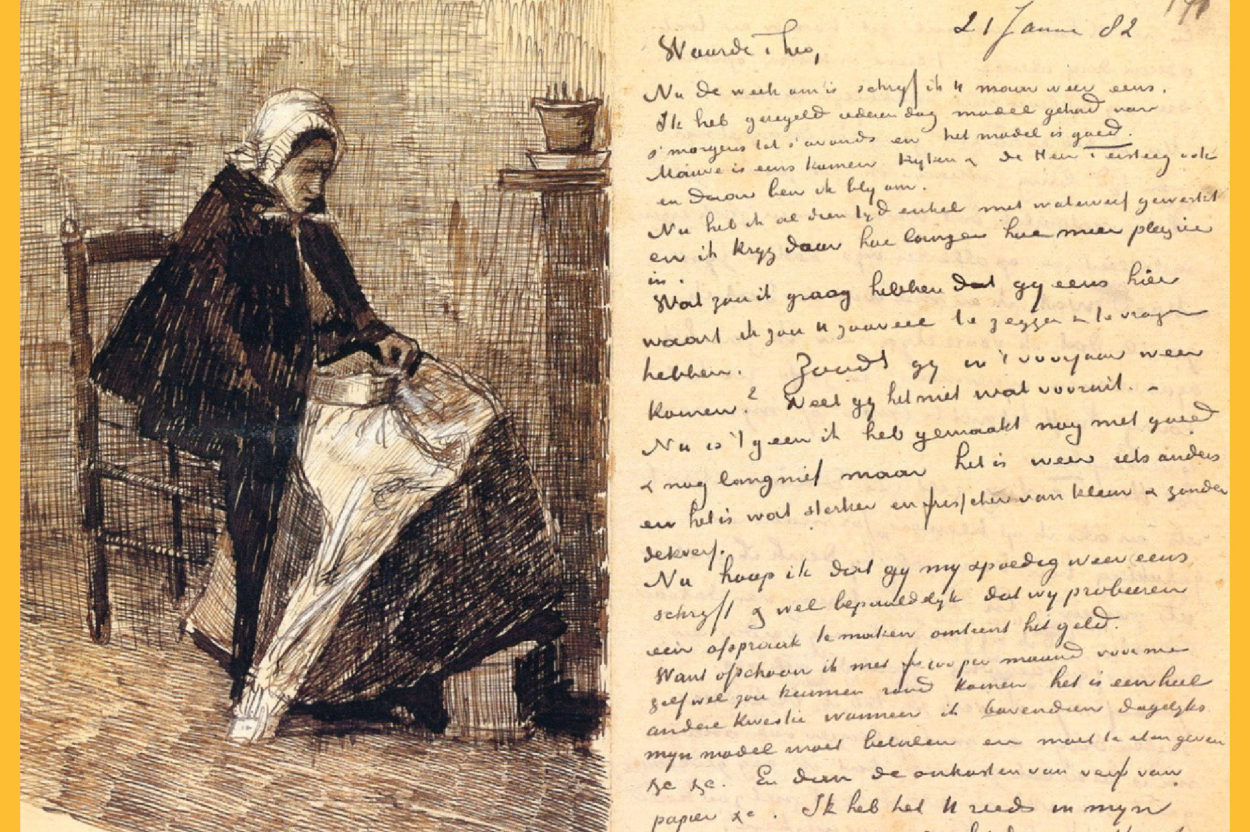 21 Janu 82
Waarde Theo,
Nu de week om is schrijf ik U maar weer eens.
Ik heb geregeld iederen dag model gehad van
s'morgens tot s'avonds en het model is goed.
Mauve is eens komen kijken & de Heer Tersteeg ook
en daar ben ik blij om.
Nu heb ik al dien tijd enkel met waterverf gewerkt
en ik krijg daar hoe langer hoe meer plezier
in.
Wat zou ik graag hebben dat gij eens hier
waart ik zou U zooveel te zeggen & te vragen
hebben. Zoudt gij in 't voorjaar weer
komen? Weet gij het niet wat vooruit. –
Nu is 't geen ik heb gemaakt nog niet goed
& nog lang niet maar het is weer iets anders
en het is wat sterker en frisscher van kleur & zonder
dekverf.
Nu hoop ik dat gij mij spoedig weer eens
schrijft & wel bepaaldelijk dat wij probeeren
een afspraak te maken omtrent het geld.
Want ofschoon ik met f 100 per maand voor me
zelf wel zou kunnen rond komen het is een heel
andere kwestie wanneer ik bovendien dagelijks
mijn model moet betalen en moet te eten geven
&c &c. En dan de onkosten van verf van
papier &c. Ik heb het U reeds in mijn